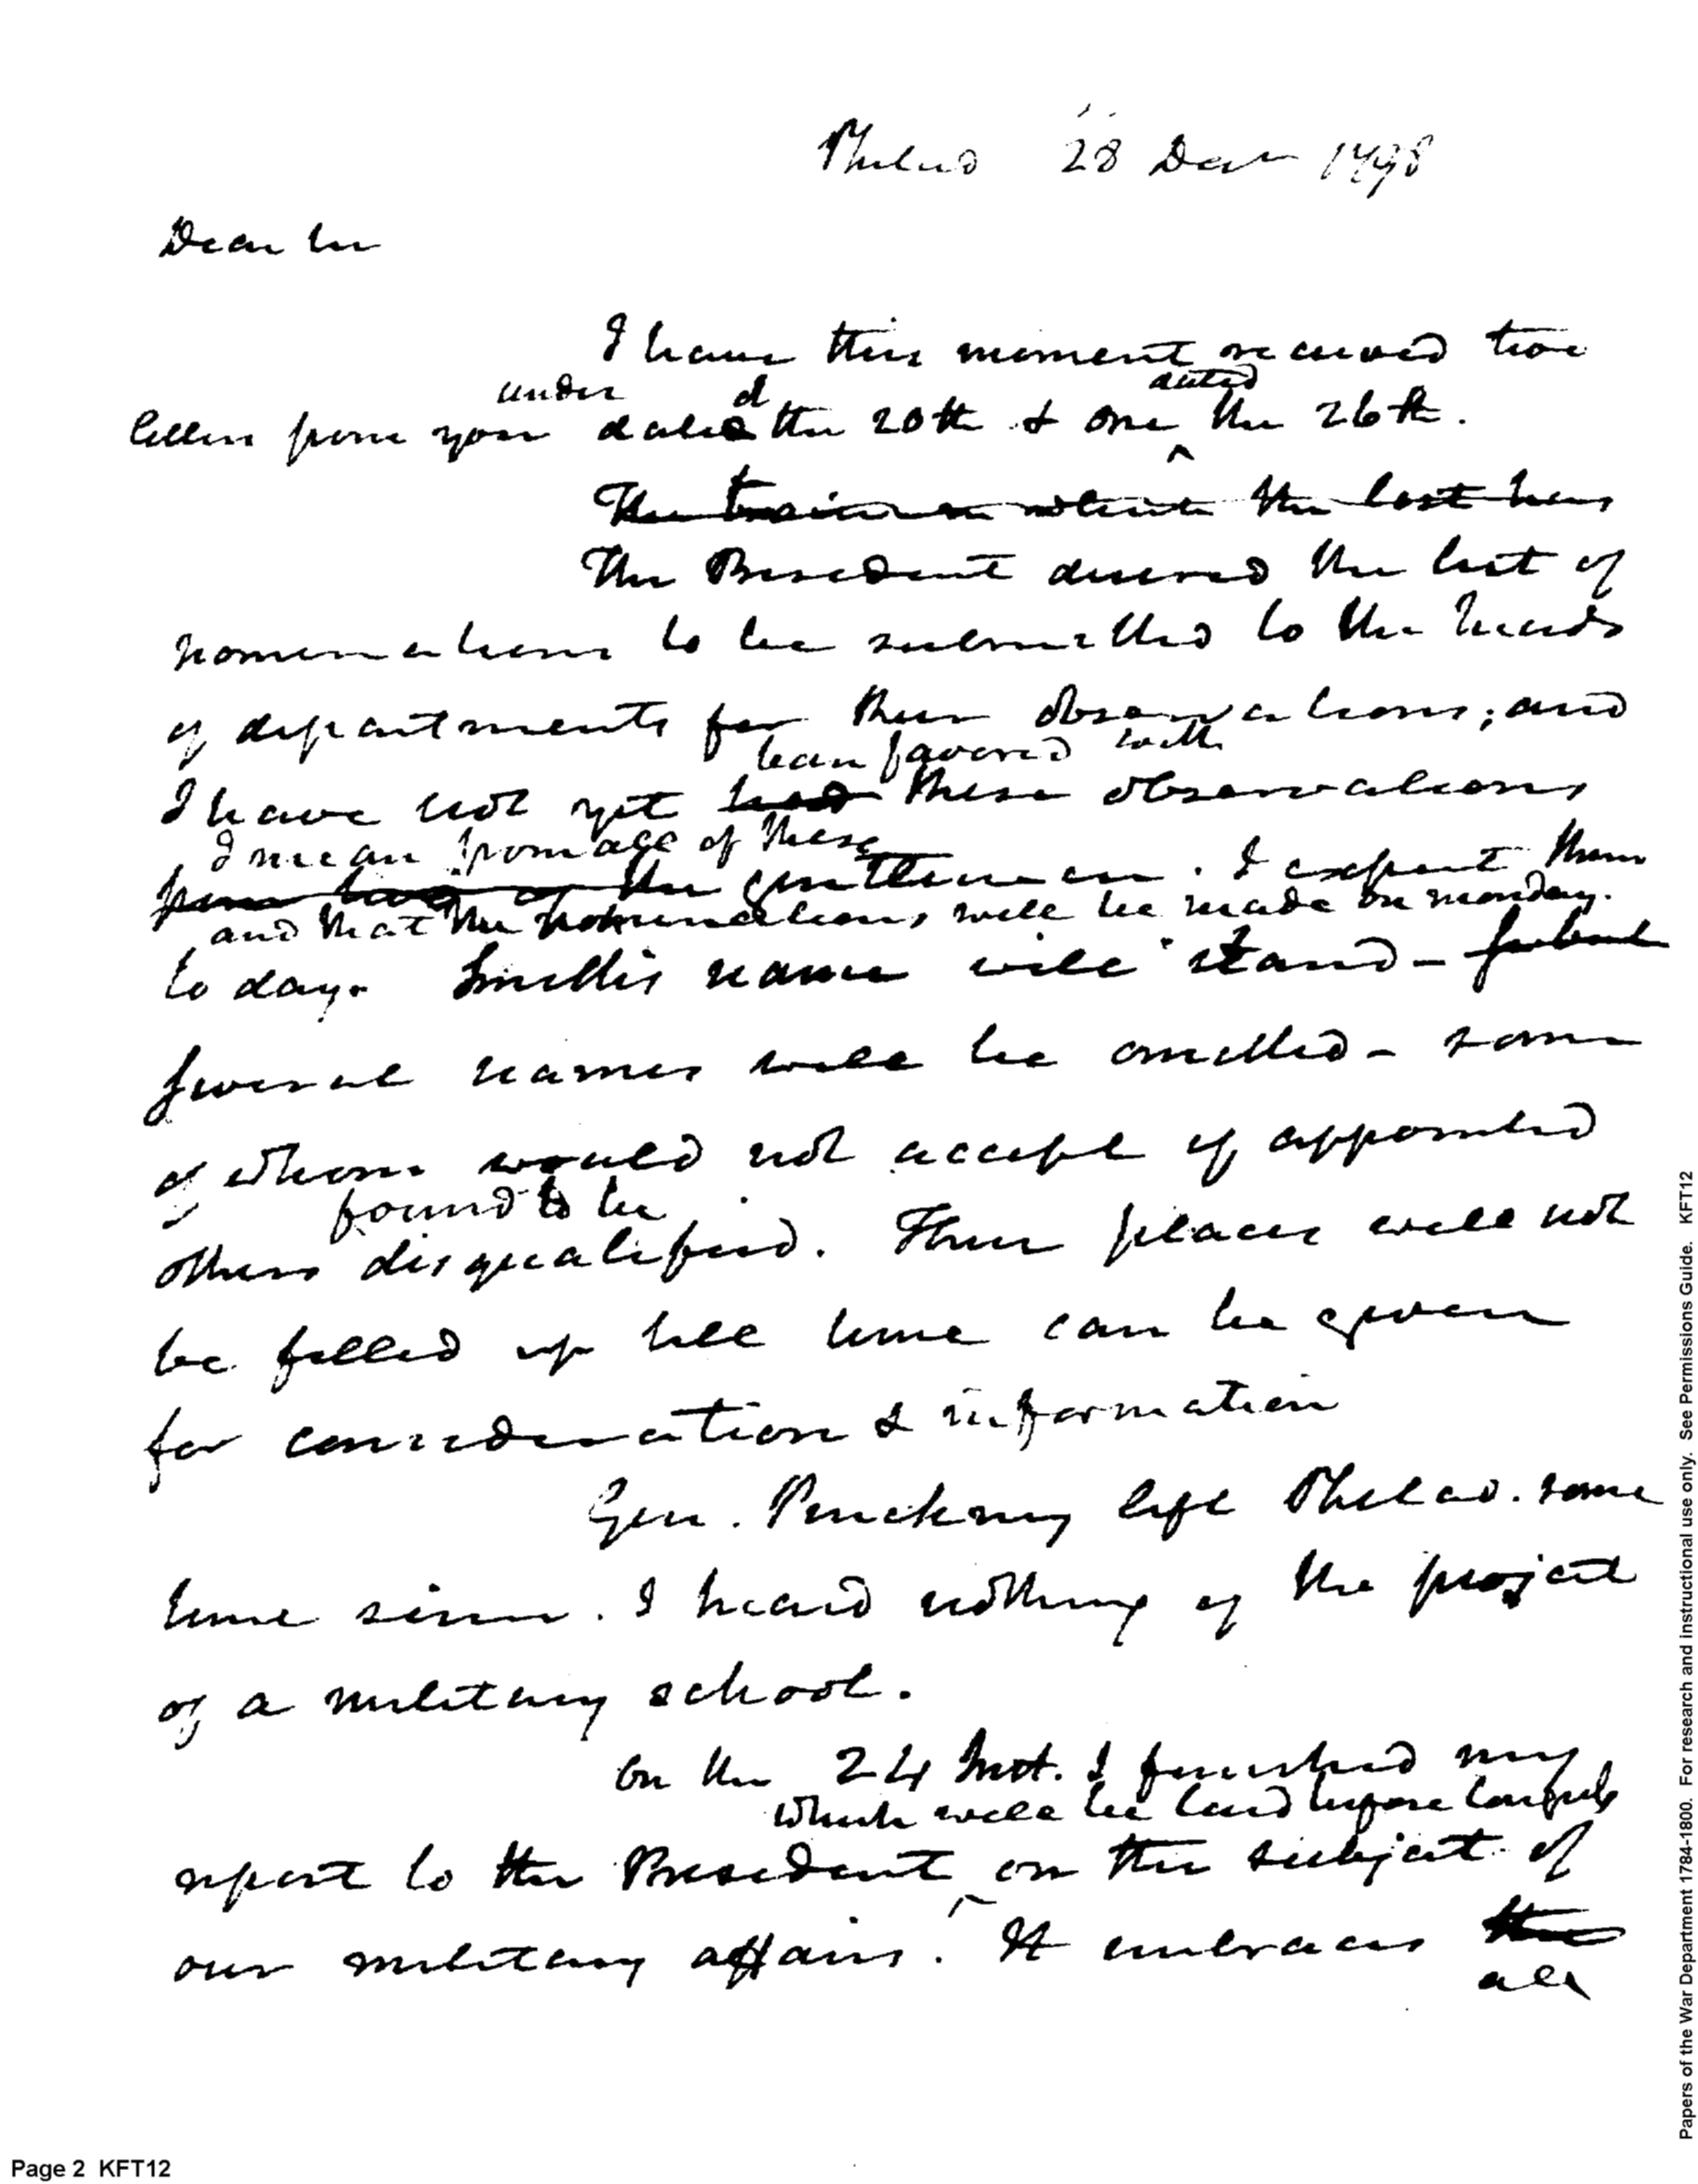 Philad 28 Decr 1798
Dear Sir
I have this moment received two
under d dated
letters from you date the 20th & one the 26th.
^
The the last has
The President desired the list of
nominations to be submitted to the heads
of departments for their observations; and
been favored with
I have not yet had these observations
I mean from all of these
from two of the gentlemen. I expect them
and that the nominations will be made on monday.
to day. Smiths name will stand -
several names will be omitted - some
of whom would not accept if appointed
found to be
others disqualified. Their places will not
be filled up till time can be given
for consideration & information
Gen. Pinckney left Philad. some
time since. I heard nothing of the project
of a military school.
On the 24 Inst. I finished my
which will be laid before Congress
report to the President on the subject of
^
our military affairs. It embraces the
all
Papers of the War Department 1784-1800. For research and instructional use only. See Permissions Guide. KFT12
Page 2 KFT12